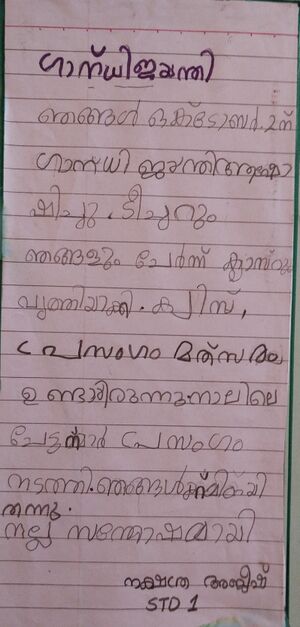 ഗാന്ധിജയന്തി
ഞങ്ങൾ ഒക്ടോബർ.2ന്
ഗാന്ധി ജയന്തിആഘോ
ഷിച്ചു. ടീച്ചറും
ഞങ്ങളും ചേർന്ന് ക്ലാസ്റൂം
വൃത്തിയാക്കി. ക്വിസ്,
പ്രസംഗം മത്സരം
ഉണ്ടായിരുന്നു.നാലിലെ
ചേട്ടന്മാർ പ്രസംഗം
നടത്തി.ഞങ്ങൾക്ക്
തന്നു.
നല്ല സന്തോഷമായി
നക്ഷത്ര
STD 1